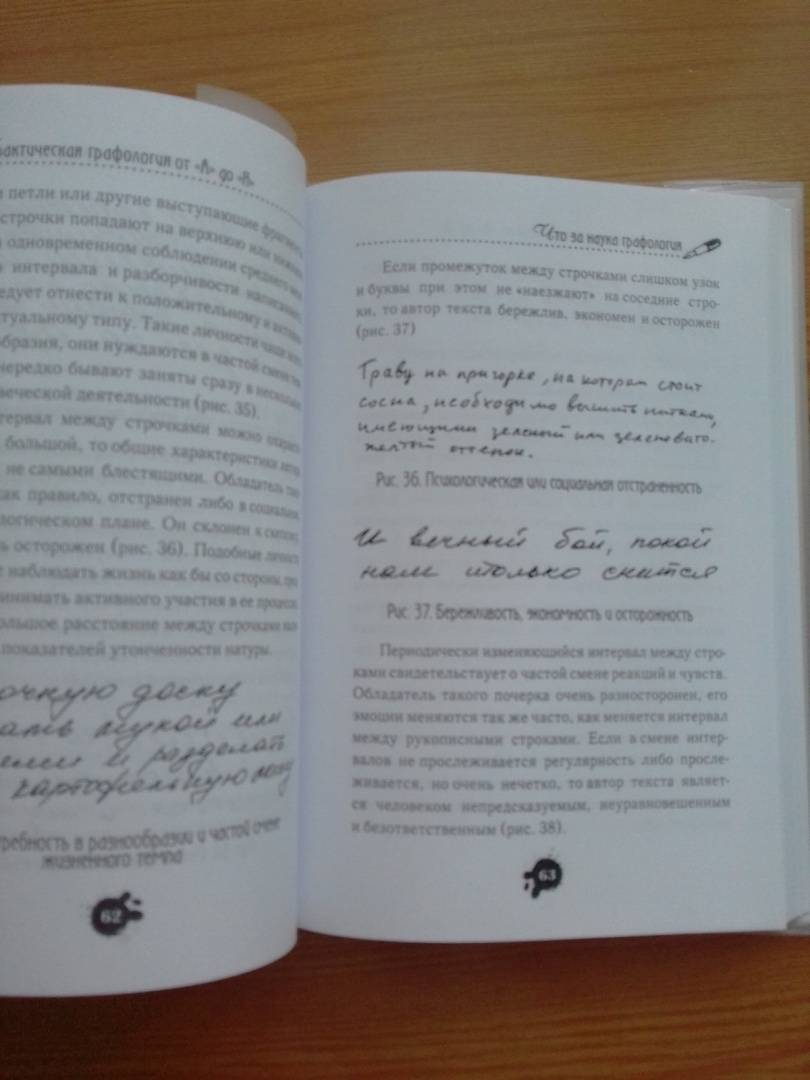 актическая графология от «А» до «Я»
и петли или другие выступающие фрагменты
строчки попадают на верхнюю или нижнюю
одновременном соблюдении среднего
интервала и разборчивости написания
едует отнести к положительному и активно
туальному типу. Такие личности чаще всего
образия, они нуждаются в частой смене
чередко бывают заняты сразу в нескольких
веческой деятельности (рис. 35).
тервал между строчками можно охарак
большой, то общие характеристики автора
не самыми блестящими. Обладатель тако
ак правило, отстранен либо в социальном
логическом плане. Он склонен к
ь осторожен (рис. 36). Подобные личности
е наблюдать жизнь как бы со стороны, при
инимать активного участия в ее процессе.
ольшое расстояние между строчками
показателей утонченности натуры.
очную доску
ать мукой или
и разделать
картофельную
ребность в разнообразии и частой смене
жизненного темпа
62
Что за наука графология
Если промежуток между строчками слишком узок
и буквы при этом не «наезжают» на соседние стро-
ки, то автор текста бережлив, экономен и осторожен
(рис. 37)
Траву на пригорке, на котором стоит
сосна, необходимо вышить нитками,
имеющими зеленый или зеленовато-
желтый оттенок.
Рис. 36. Психологическая или социальная отстраненность
И вечный бой, покой
нам только снится
Рис. 37. Бережливость, экономность и осторожность
Периодически изменяющийся интервал между стро-
ками свидетельствует о частой смене реакций и чувств.
Обладатель такого почерка очень разносторонен, его
эмоции меняются так же часто, как меняется интервал
между рукописными строками. Если в смене интер-
валов не прослеживается регулярность либо просле-
живается, но очень нечетко, то автор текста являет-
ся человеком непредсказуемым, неуравновешенным
и безответственным (рис. 38).
63